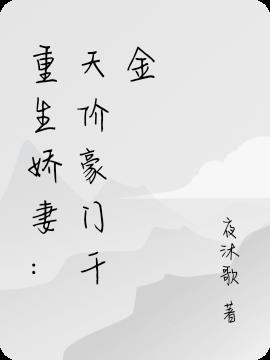 重生娇妻：
天价豪门千
金
夜沐歌 著